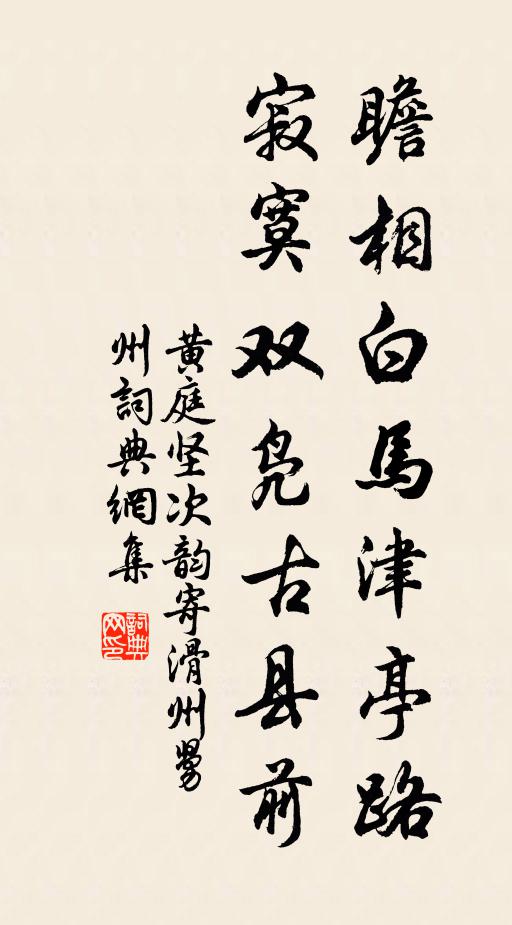 瞻相白馬津亭路
寂寞双凫古县前
黄庭坚次韵寄滑州舅
州詞典網集
詞典网印